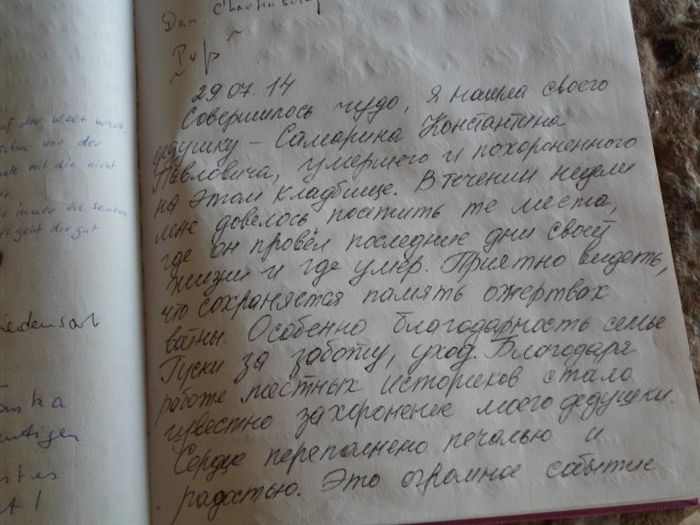 Dan
Pup
29.07.14
Совершилось чудо, я нашла своего
дедушку – Самарина Константина
Павловича, умершего и похороненного
на этом кладбище. В течении недели
мне довелось посетить те места,
где он провёл последние дни своей
жизни и где умер. Приятно видеть,
что сохраняется память о жертвах
войны. Особенно благодарность семье
Гуски за заботу, уход. Благодаря
работе местных историков стало
известно захоронение моего дедушки.
Сердце переполнено печалью и
радостью. Это огромное событие
auf der Welt
der
mit dir nicht
immer
geht dir gut